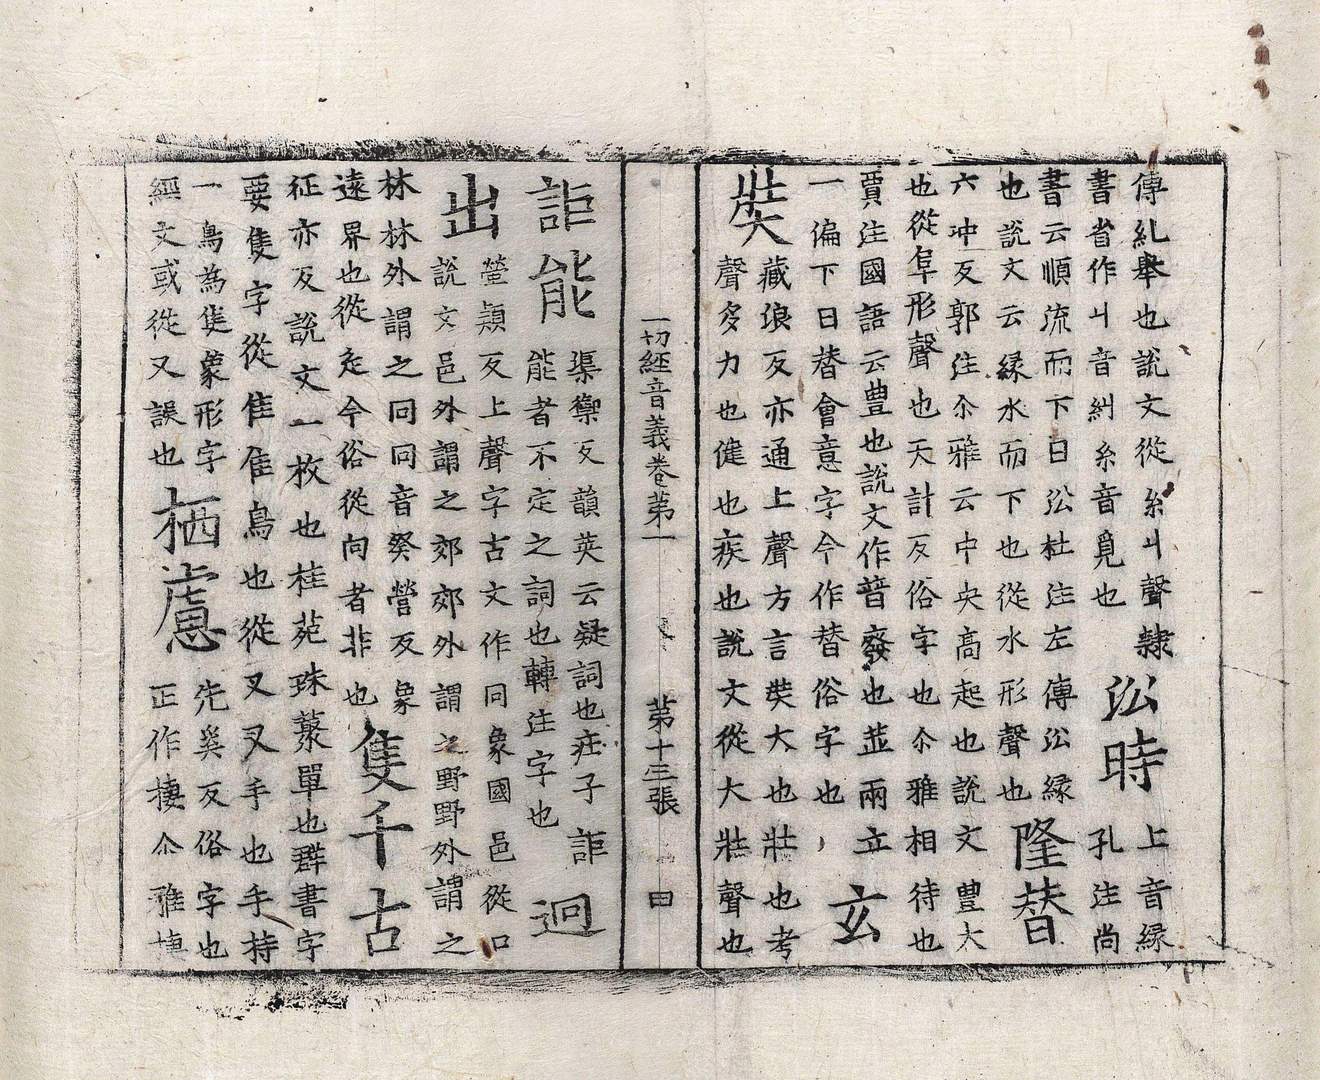 傳糺舉也說文從糸丩聲隸
書省作丩音糾糸音覓也
㳂時
上音緣
孔注尚
書云順流而下曰㳂杜注左傳㳂緣
也說文云緣水而下也從水形聲也
隆替
六冲反郭注尒雅云中央高起也說文豐大
也從阜形聲也天計反俗字也尒雅相待也
賈注國語云豊也說文作暜癈也並兩立
一偏下曰替會意字今作替俗字也
玄
奘
藏浪反亦通上聲方言奘大也壯也考
聲夛力也健也疾也說文從大壯聲也
一切經音義卷第一
第十三張
田
詎能
渠禦反韻英云疑詞也疰子詎
能者不定之詞也轉注字也
迥
出
螢頴反上聲字古文作冋象國邑從口
說文邑外謂之郊郊外謂之野野外謂之
林林外謂之冋冋音癸營反象
遠界也從辵今俗從向者非也
隻千古
征亦反說文一枚也桂苑珠藂單也群書字
要隻字從隹隹鳥也從又又手也手持
一鳥為隻象形字
經文或從又誤也
栖慮
先奚反俗字也
正作棲尒雅